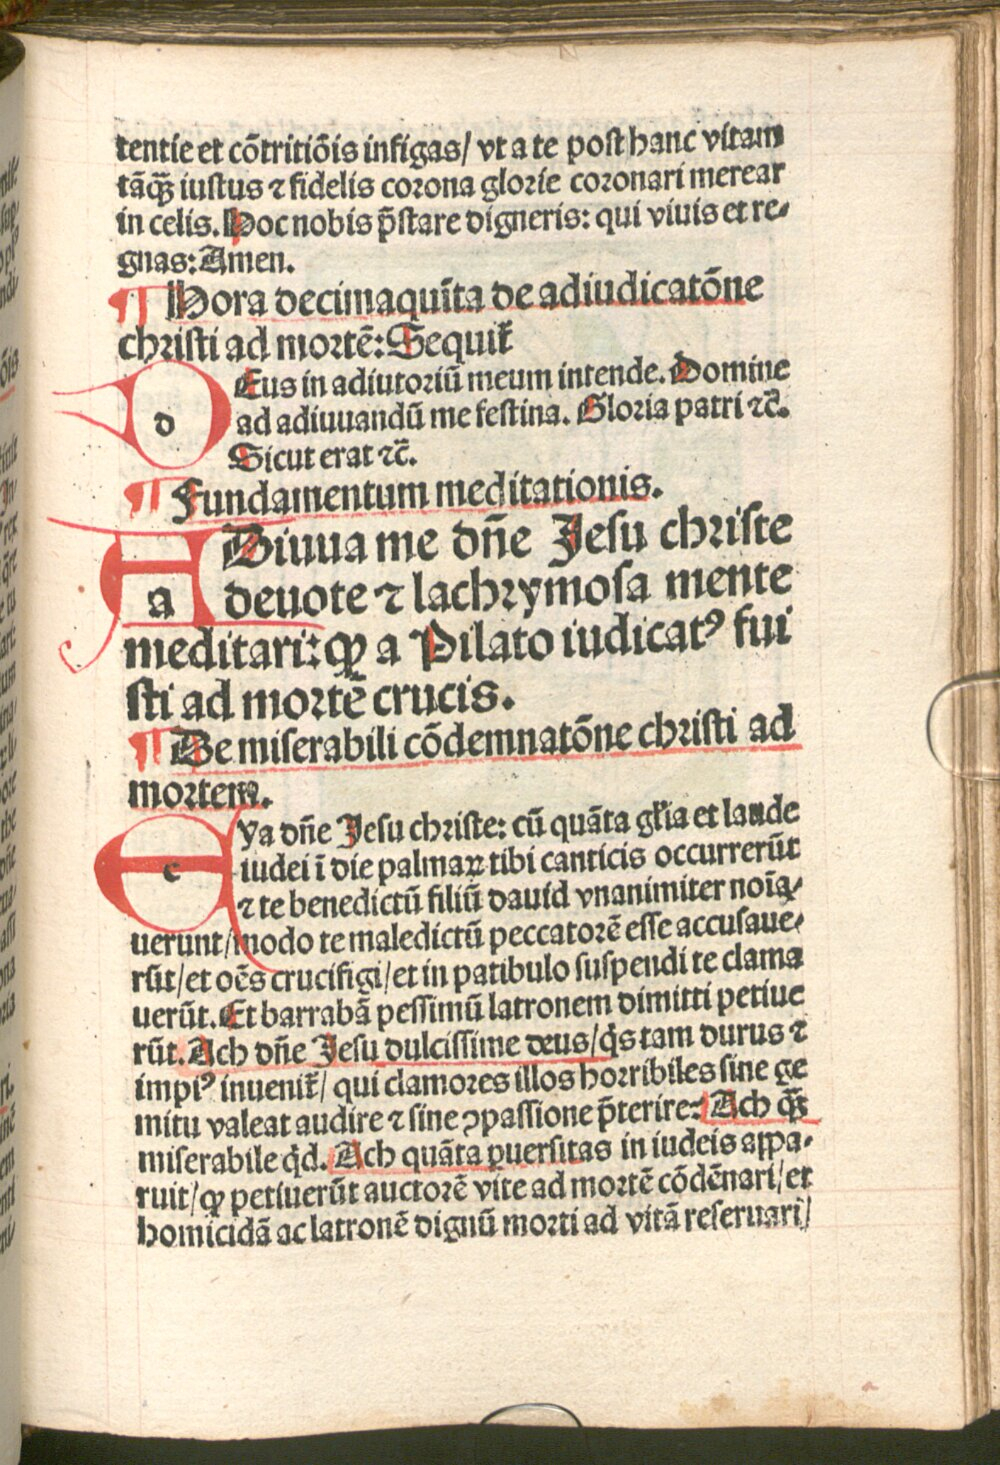 tentie et cōtritiōis infigas/ vt a te post hanc vitam
tāq̄ȝ iustus ⁊ fidelis corona glorie coronari merear
in celis. Hoc nobis p̄stare digneris: qui viuis et re-
gnas: Amen.
¶ Hora decimaquīta de adiudicatōne
christi ad mortē: Sequit̄
DEus in adiutoriū meum intende. Domine
ad adiuuandū me festina. Gloria patri ⁊c̄.
Sicut erat ⁊c̄.
¶ Fundamentum meditationis.
ADiuua me dn̄e Jesu christe
deuote ⁊ lachrymosa mente
meditari: ꝙ a Pilato iudicatꝰ fui
sti ad mortē crucis.
¶ De miserabili cōdemnatōne christi ad
mortem.
EYa dn̄e Jesu christe: cū quāta gl̄ia et laude
iudei ī die palmaꝝ tibi canticis occurrerūt
⁊ te benedictū filiū dauid vnanimiter noīa-
uerunt/ modo te maledictū peccatorē esse accusaue-
rūt/ et oēs crucifigi/ et in patibulo suspendi te clama
uerūt. Et barrabā pessimū latronem dimitti petiue
rūt. Ach dn̄e Jesu dulcissime deus/ q̇s tam durus ⁊
impiꝰ inuenit̄/ qui clamores illos horribiles sine ge
mitu valeat audire ⁊ sine ꝯpassione p̄terire: Ach q̄ȝ
miserabile q̇d. Ach quāta ꝑuersitas in iudeis appa-
ruit/ ꝙ petiuerūt auctorē vite ad mortē cōdēnari/ et
homicidā ac latronē dignū morti ad vitā reseruari/